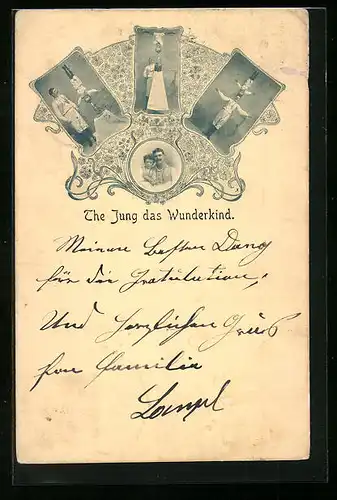 The Jung das Wunderkind.
Meinen besten Dang
für die Gratulation,
Und Herzlichen Gruß
fon Familie
Lampl